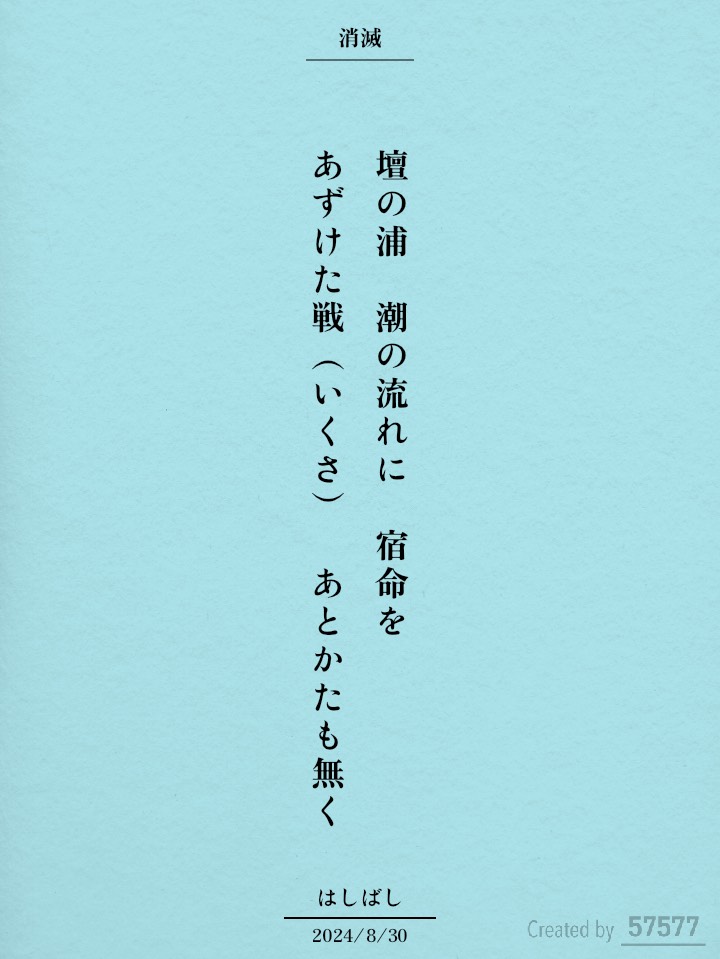 消滅
壇の浦　潮の流れに　宿命を
あずけた戦（いくさ）　あとかたも無く
はしばし
2024/8/30
Created by 57577